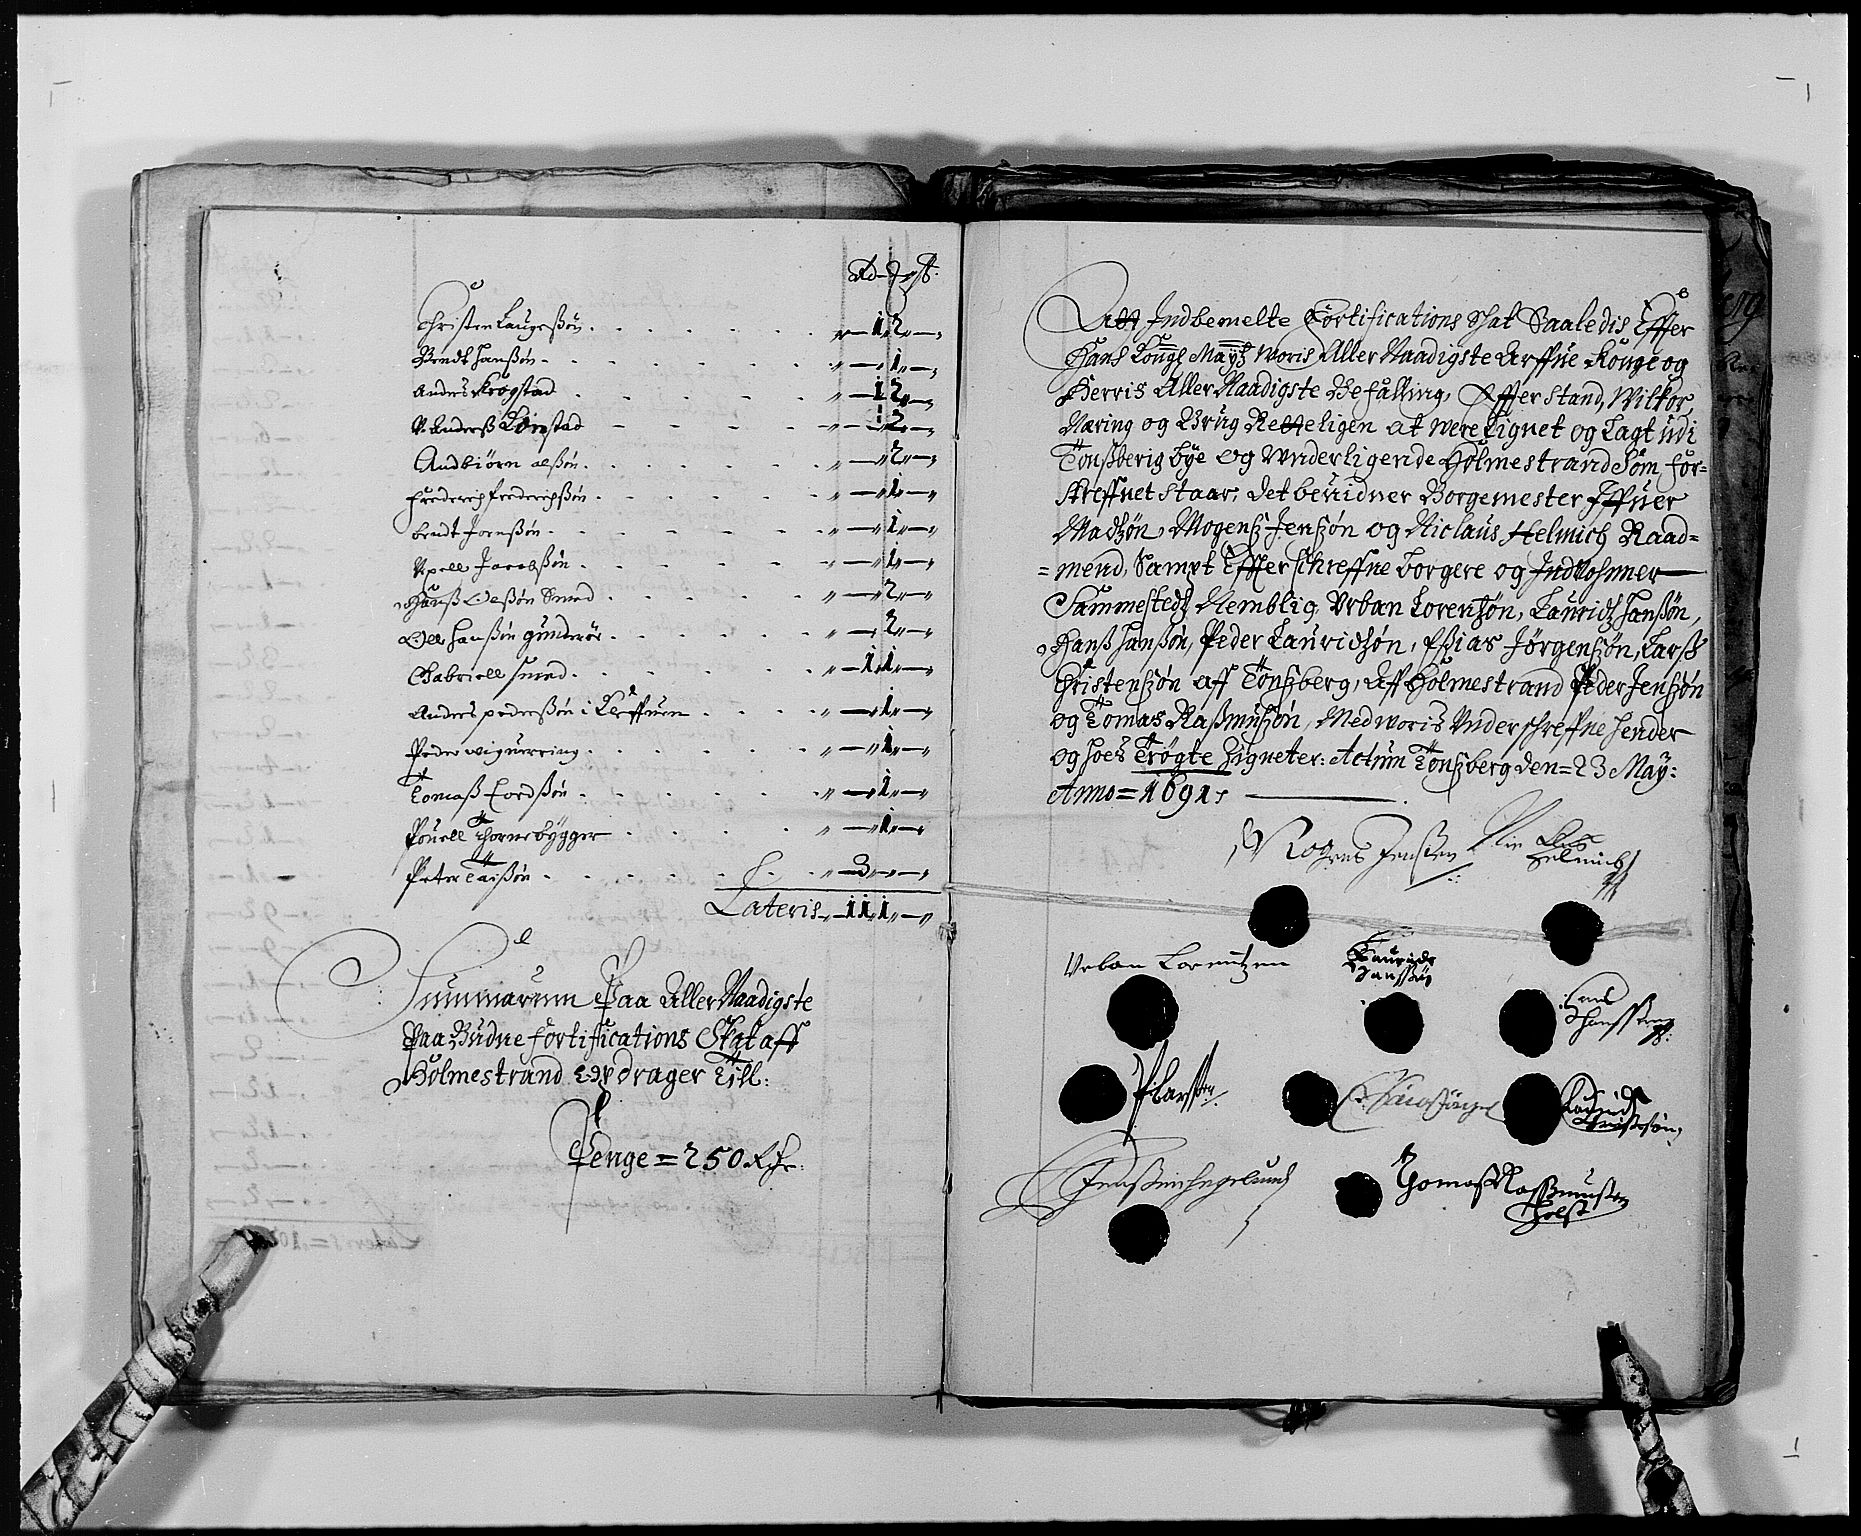 Rd - ß:
Christen Laugeßøn . . . . . . „ — 1 2 „ — „
Bendt Hanßøn - . . . . . . „ — „ 1 „ — „
Anders Krogstad . . . . . . „ — 1 2 „ — „
Anderß Lønstad - - - - „ — „ 2 „ — „
Andbiørn olßøn . . . . . . „ — „ 2 „ — „
Frederich Frederichßøn . . . . . . „ — „ 1 „ — „
Bendt Jornßøn . . . . . . „ — „ 1 „ — „
Jacobßøn . . . . . . „ — „ 1 „ — „
Hanß Olßøn Smed . . . . . . „ — „ 2 „ — „
Olle Hanßøn . . . . . . „ — „ 2 „ — „
Gabriell smed . . . . . . „ — 1 1 „ — „
Anders pederßøn i . . . . „ — „ 1 „ — „
Peder . . . . . . „ — „ 1 „ — „
Tomaß . . . . . . „ — „ 1 „ — „
Pouell Thornebygger . . . . . „ — „ 1 „ — „
Peter . . . . . . „ — 3 „ — „
Lateris „ — 11 „ 1 „ — „
Summarum Paa Aller Naadigste
Paa Budne fortifications Skat aff
Holmestrand Eer drager Till:
Penge = 250 Rdr:
Att Indbemelte Fortifications Skat Saaledis Effter
Hans Kongl Maytz Woris Aller Naadigste Arffue Konge og
Herris Aller Naadigste Befalling, Effter Stand, Wilkor,
Næring og Brug Retteligen at were Lignet og Lagt udi
Tønßberig bye og Vnderligende Holmestrand Som for=
skreffuet staar, det beuidner Borgemester Iffuer
Madzøn, Mogens Jenszøn og Niclaus Helmich Raad=
= mend, Sampt Effter schreffne Borgere og Indvohnner
Sammestedz Nemblig, Vrban Lorenzøn, Lauridz Hanßøn,
Hanß Hanßøn, Peder Lauridzøn, Eßias Jørgenszøn, Larß
Christenszøn aff Tønszberg, Aff Holmestrand Peder Jenszøn
og Tomas Raßmuszøn, Med woris Vnderschreffne Hender
og hoes Trøgte Zigneter: Actum Tønszberg den = 23 May:
Anno = 1691 ,
Mogens Jenßen Niclas Helmich
Urban Lorentzen Lauridz Hanssøn
Hans Hanssen
P Larsen Lauridz Christensøn
Thomas Rassmusen Holst